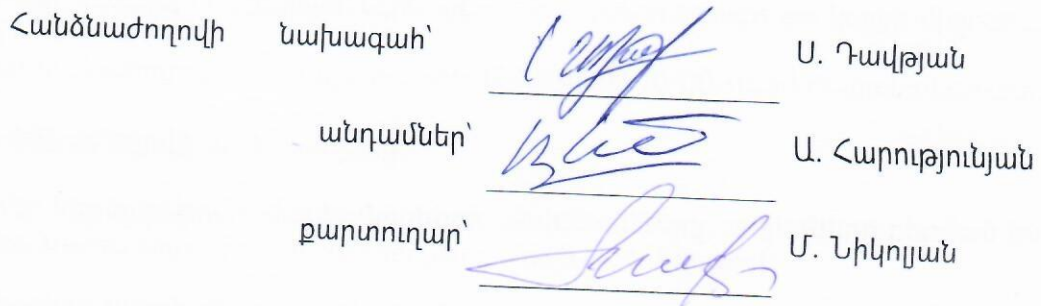 Հանձնաժողովի նախագահ՝ Ս. Դավթյան
անդամներ՝ Ա. Հարությունյան
քարտուղար՝ Մ. Նիկոլյան